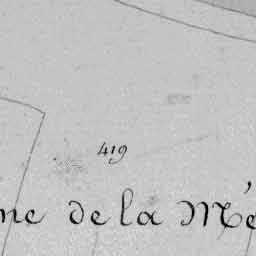 419
ne de la Mé